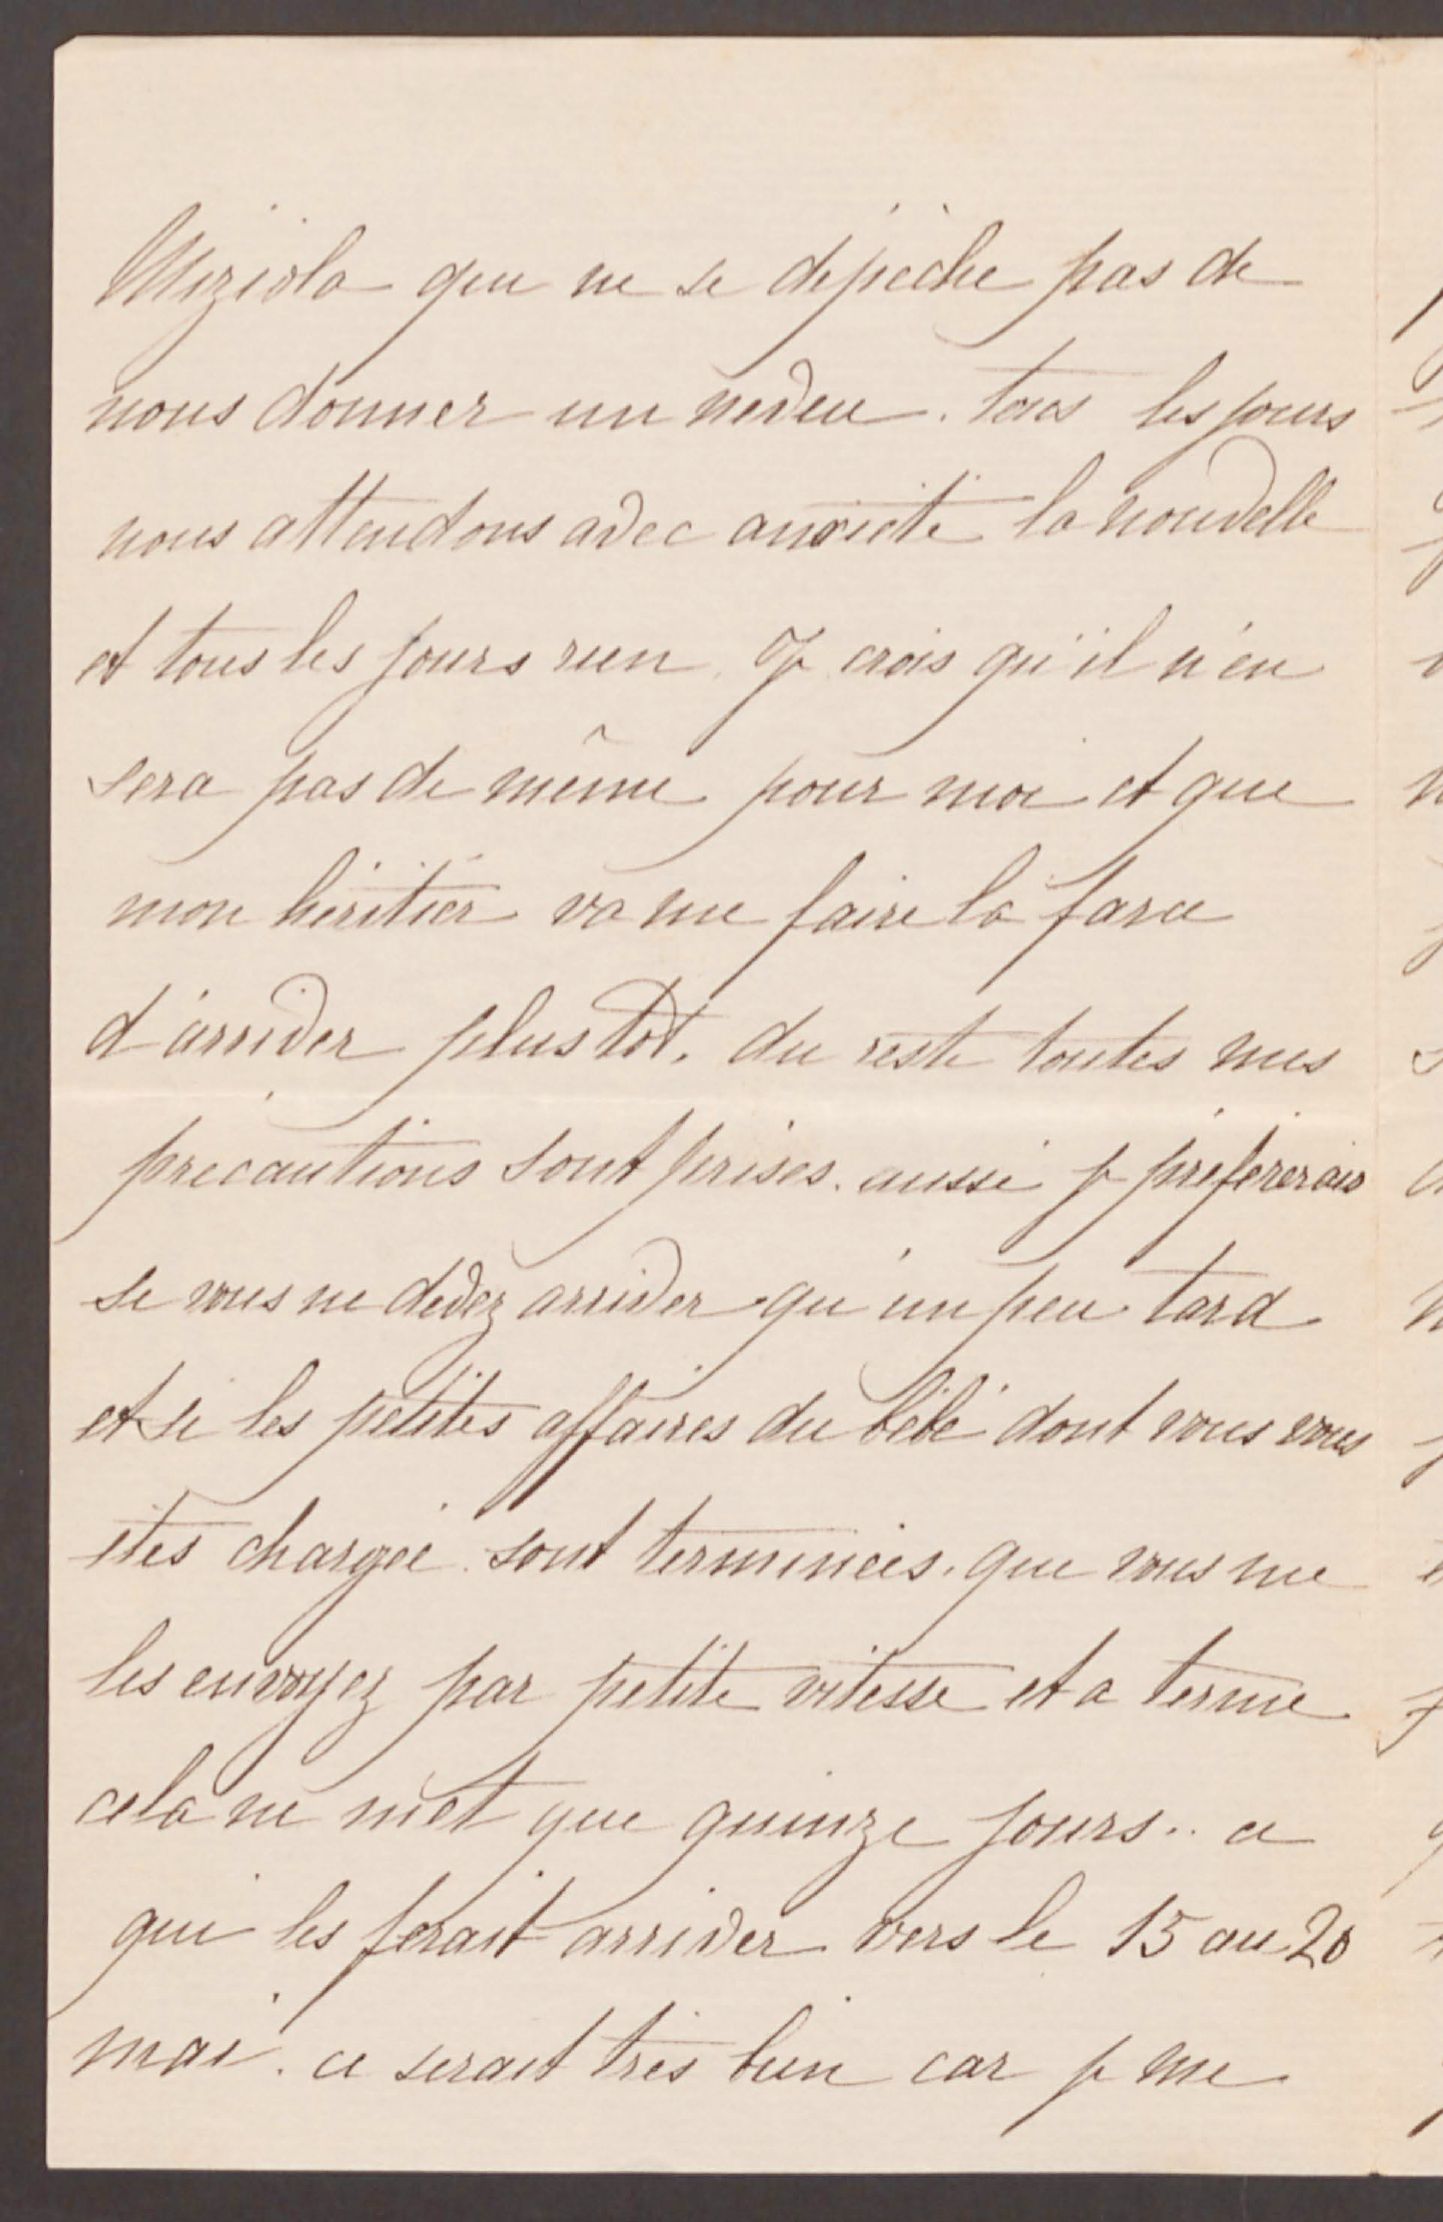 Miziola qui ne se dépèche pas de
nous donner un neveu. tous les jours
nous attendons avec anxiété la nouvelle
et tous les jours rien. Je crois qu'il n'en
sera pas de même pour moi et que
mon héritier va me faire la farce
d'arriver plus tôt. du reste toutes mes
precautions sont prises. aussi je préfererais
si vous ne devez arriver qu'un peu tard
et si les petites affaires du bébé dont vous vous
êtes chargée sont terminées. que vous me
les envoyez par petite vitesse et a terme
cela ne met que quinze jours.. ce
qui les ferait arriver vers le 15 au 20
mai. ce serait très bien car je me